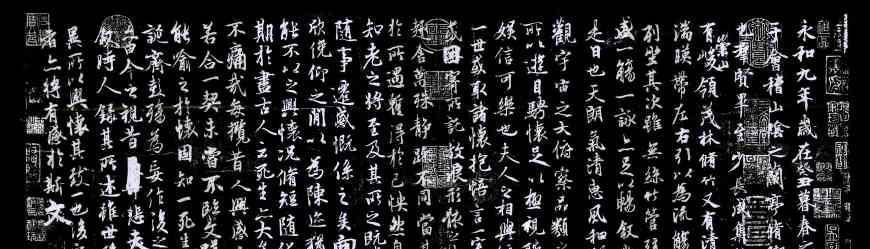 永和九年歲在癸丑暮春
于會稽山陰之蘭亭脩
也羣賢畢至少長咸集
有崇山峻領茂林脩竹又有清
湍暎帶左右引以為流觴
列坐其次雖無絲竹管
盛一觴一詠亦足以暢敘
是日也天朗氣清惠風和
觀宇宙之大俯察品類之
所以遊目騁懷足以極視
娛信可樂也夫人之相與
一世或取諸懷抱悟言一室
或因寄所託放浪形骸
趣舍萬殊靜躁不同當其
於所遇暫得於己怏然自
知老之將至及其所之既
隨事遷感慨係之矣向
欣俛仰之間以為陳迹猶
能不以之興懷況脩短隨化
期於盡古人云死生亦大矣
不痛哉每攬昔人興感
若合一契未嘗不臨文嗟
能喻之於懷固知一死生
誕齊彭殤為妄作後之
由今之視昔悲夫
敘時人錄其所述雖世
異所以興懷其致一也後之
者亦將有感於斯文